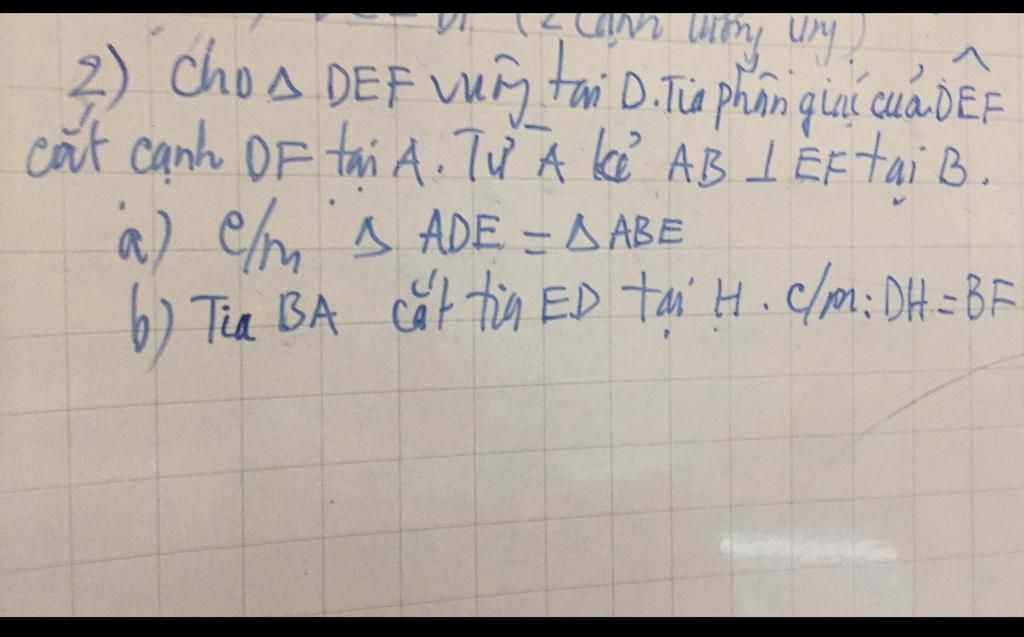 (2 cạnh tương ứng)
2) Cho Δ DEF vuông tại D. Tia phân giác của DEF
cắt cạnh DF tại A. Từ A kẻ AB ⊥ EF tại B.
a) c/m Δ ADE = Δ ABE
b) Tia BA cắt tia ED tại H. c/m: DH = BF